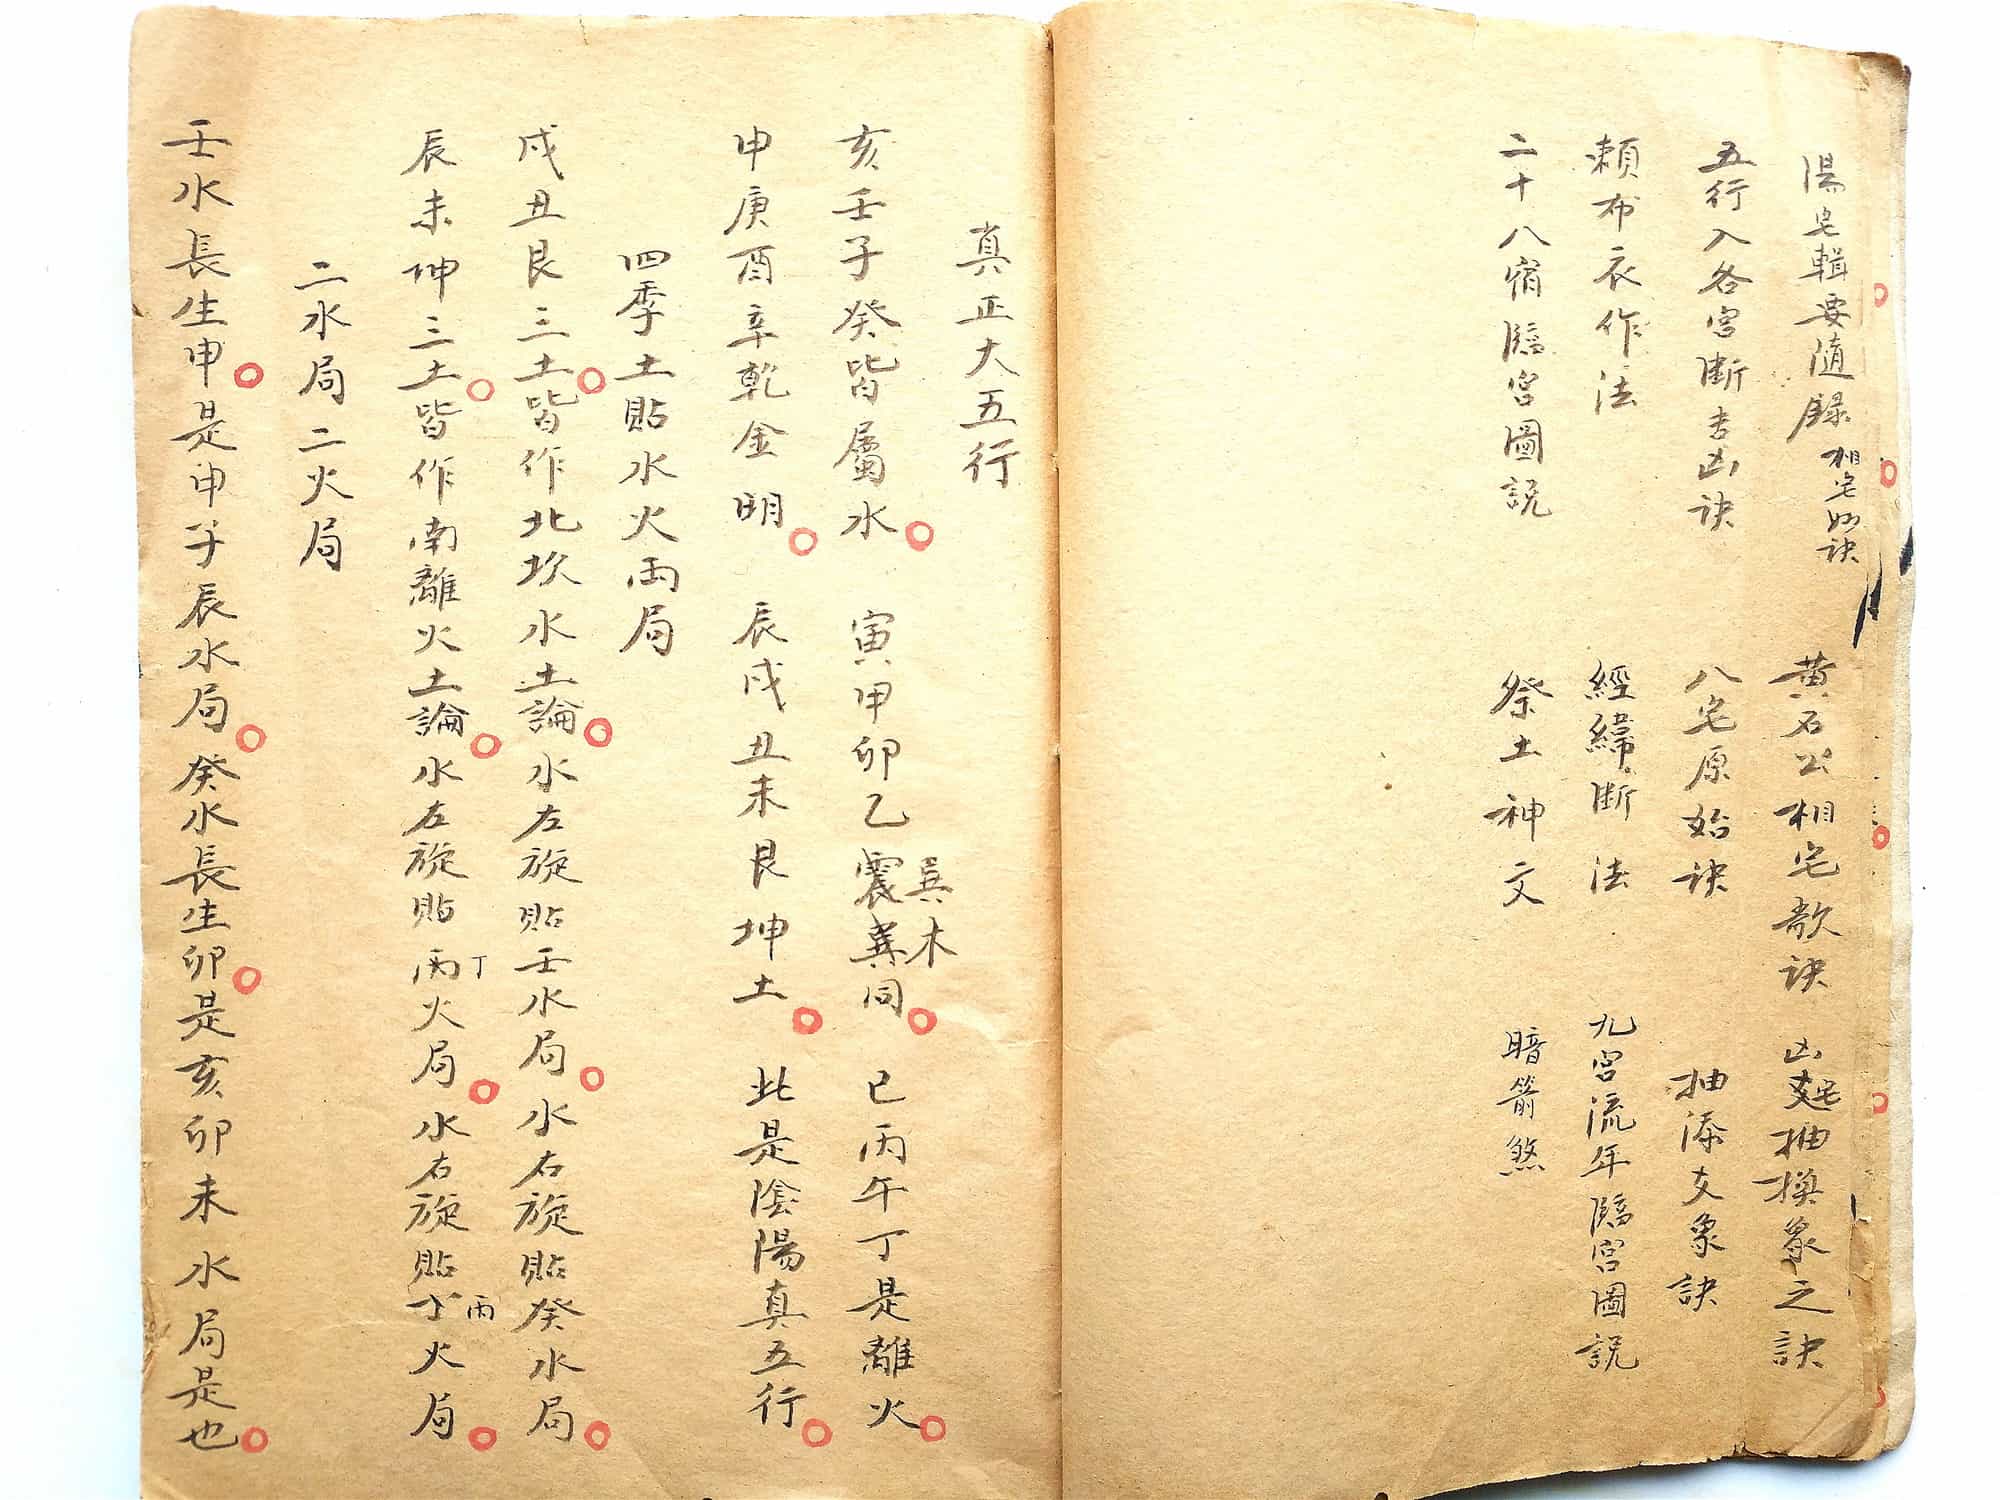 湯宅輯要随録 相宅妙訣 黄石公相宅歌訣 凶宅起抽換象之訣
五行入各宮断吉凶訣 八宅原始訣 抽添爻象訣
頼布衣作法 經緯断法 九宮流年臨宮圖説
二十八宿臨宮圖説 祭土神文 暗箭煞
真正大五行
亥壬子癸皆屬水 寅甲卯乙震巽同 巽木 巳丙午丁是離火
申庚酉辛乾金明 辰戌丑未艮坤土 此是陰陽真五行
四季土貼水火両局
戌丑艮三土皆作北坎水土論水左旋貼壬水局水右旋貼癸水局
辰未坤三土皆作南離火土論水左旋貼丙丁火局水右旋貼丁丙火局
二水局二火局
壬水長生申是申子辰水局癸水長生卯是亥卯未水局是也